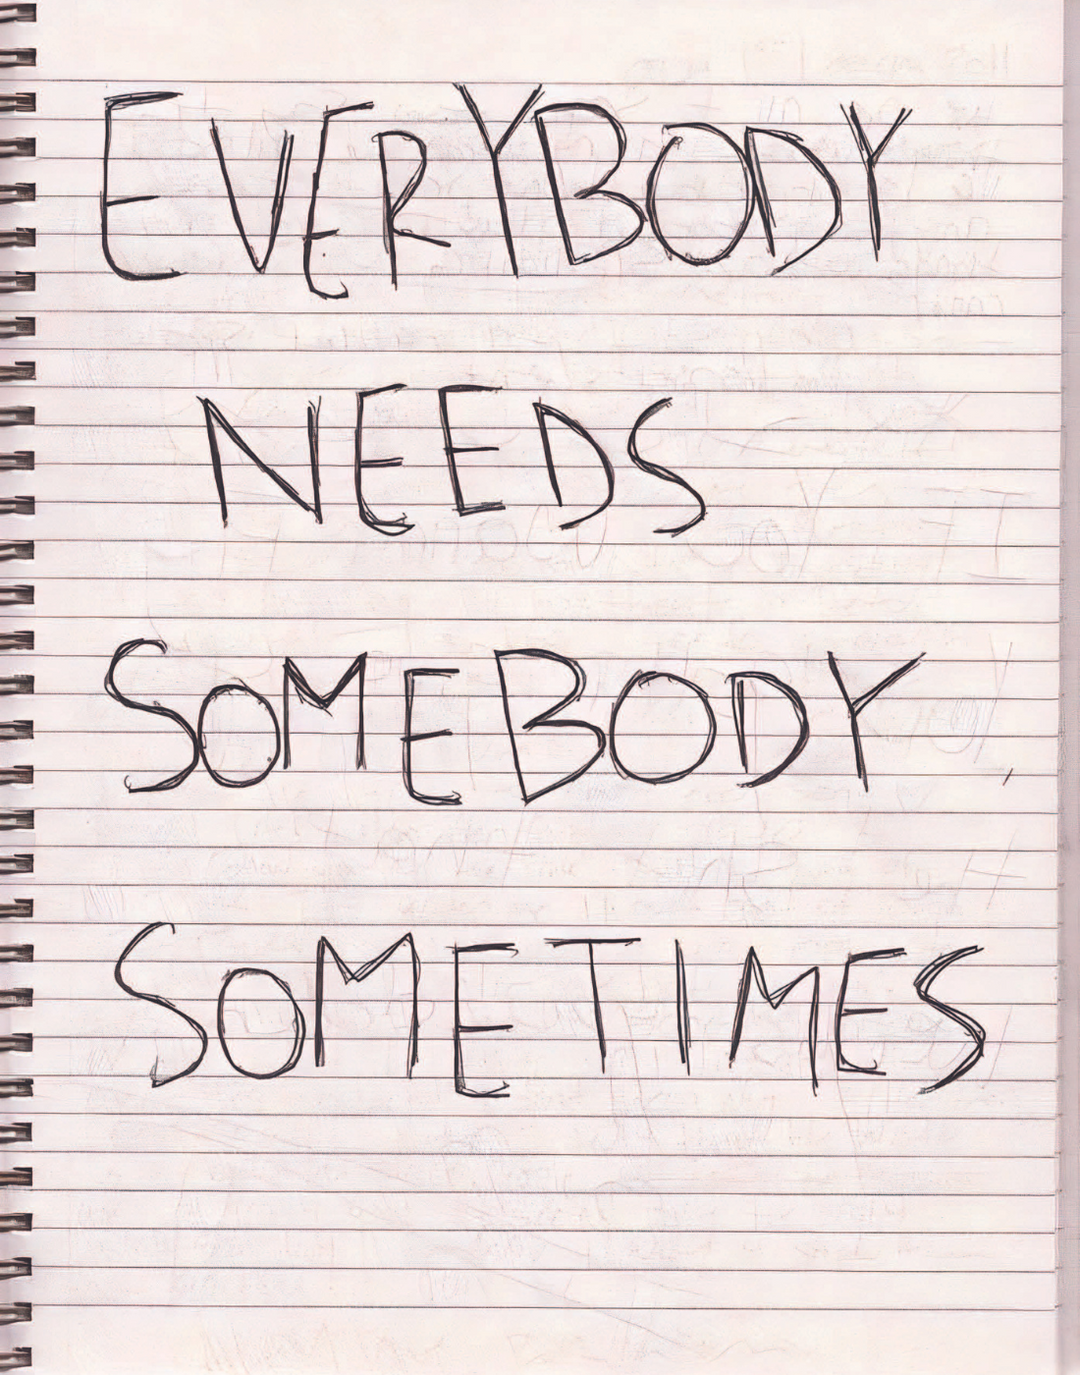 EVERYBODY
NEEDS
SOMEBODY
SOMETIMES